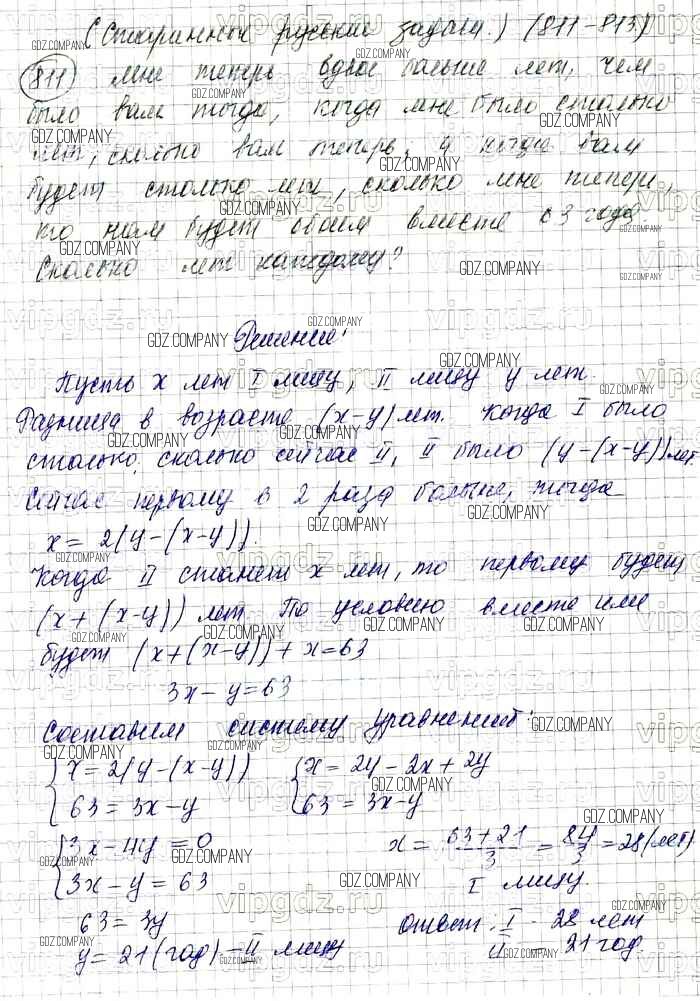 (Старинные русские задачи.) (811-813)
811) Мне теперь вдвое больше лет, чем
было вам тогда, когда мне было столько
лет, сколько вам теперь, а когда вам
будет столько лет, сколько мне теперь,
то нам будет обоим вместе 63 года.
Сколько лет каждому?
Решение:
Пусть x лет I лицу, II лицу y лет.
Разница в возрасте (x-y) лет. Когда I было
столько, сколько сейчас II, II было (y-(x-y)) лет
Сейчас первому в 2 раза больше, тогда
x = 2(y-(x-y)).
Когда II станет x лет, то первому будет
(x+(x-y)) лет. По условию вместе им
будет (x+(x-y))+x=63
3x-y=63
Составим систему уравнений:
x=2(y-(x-y)) x=2y-2x+2y
63=3x-y 63=3x-y
3x-4y=0 x = 63+21/3 = 84/3 = 28 (лет)
3x-y=63 I лицу.
63=3y Ответ: I - 28 лет
y=21 (год) - II лицу II - 21 год.
GDZ.COMPANY
vipgdz.ru